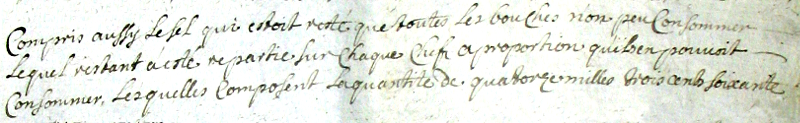 Compris aussy Le sel qui estoit resté que toutes Les bouches n'on peu Consommer
Lequel restant a esté repartie sur Chaque Chef a proportion qu'ils en pouvoit
Consommer, Lesquelles Composent La quantité de quatorze milles trois cents soixante